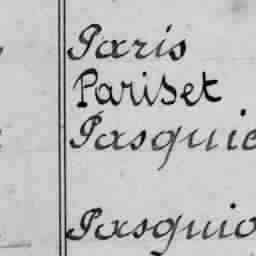 Paris
Pariset
Pasquie
Pasquio